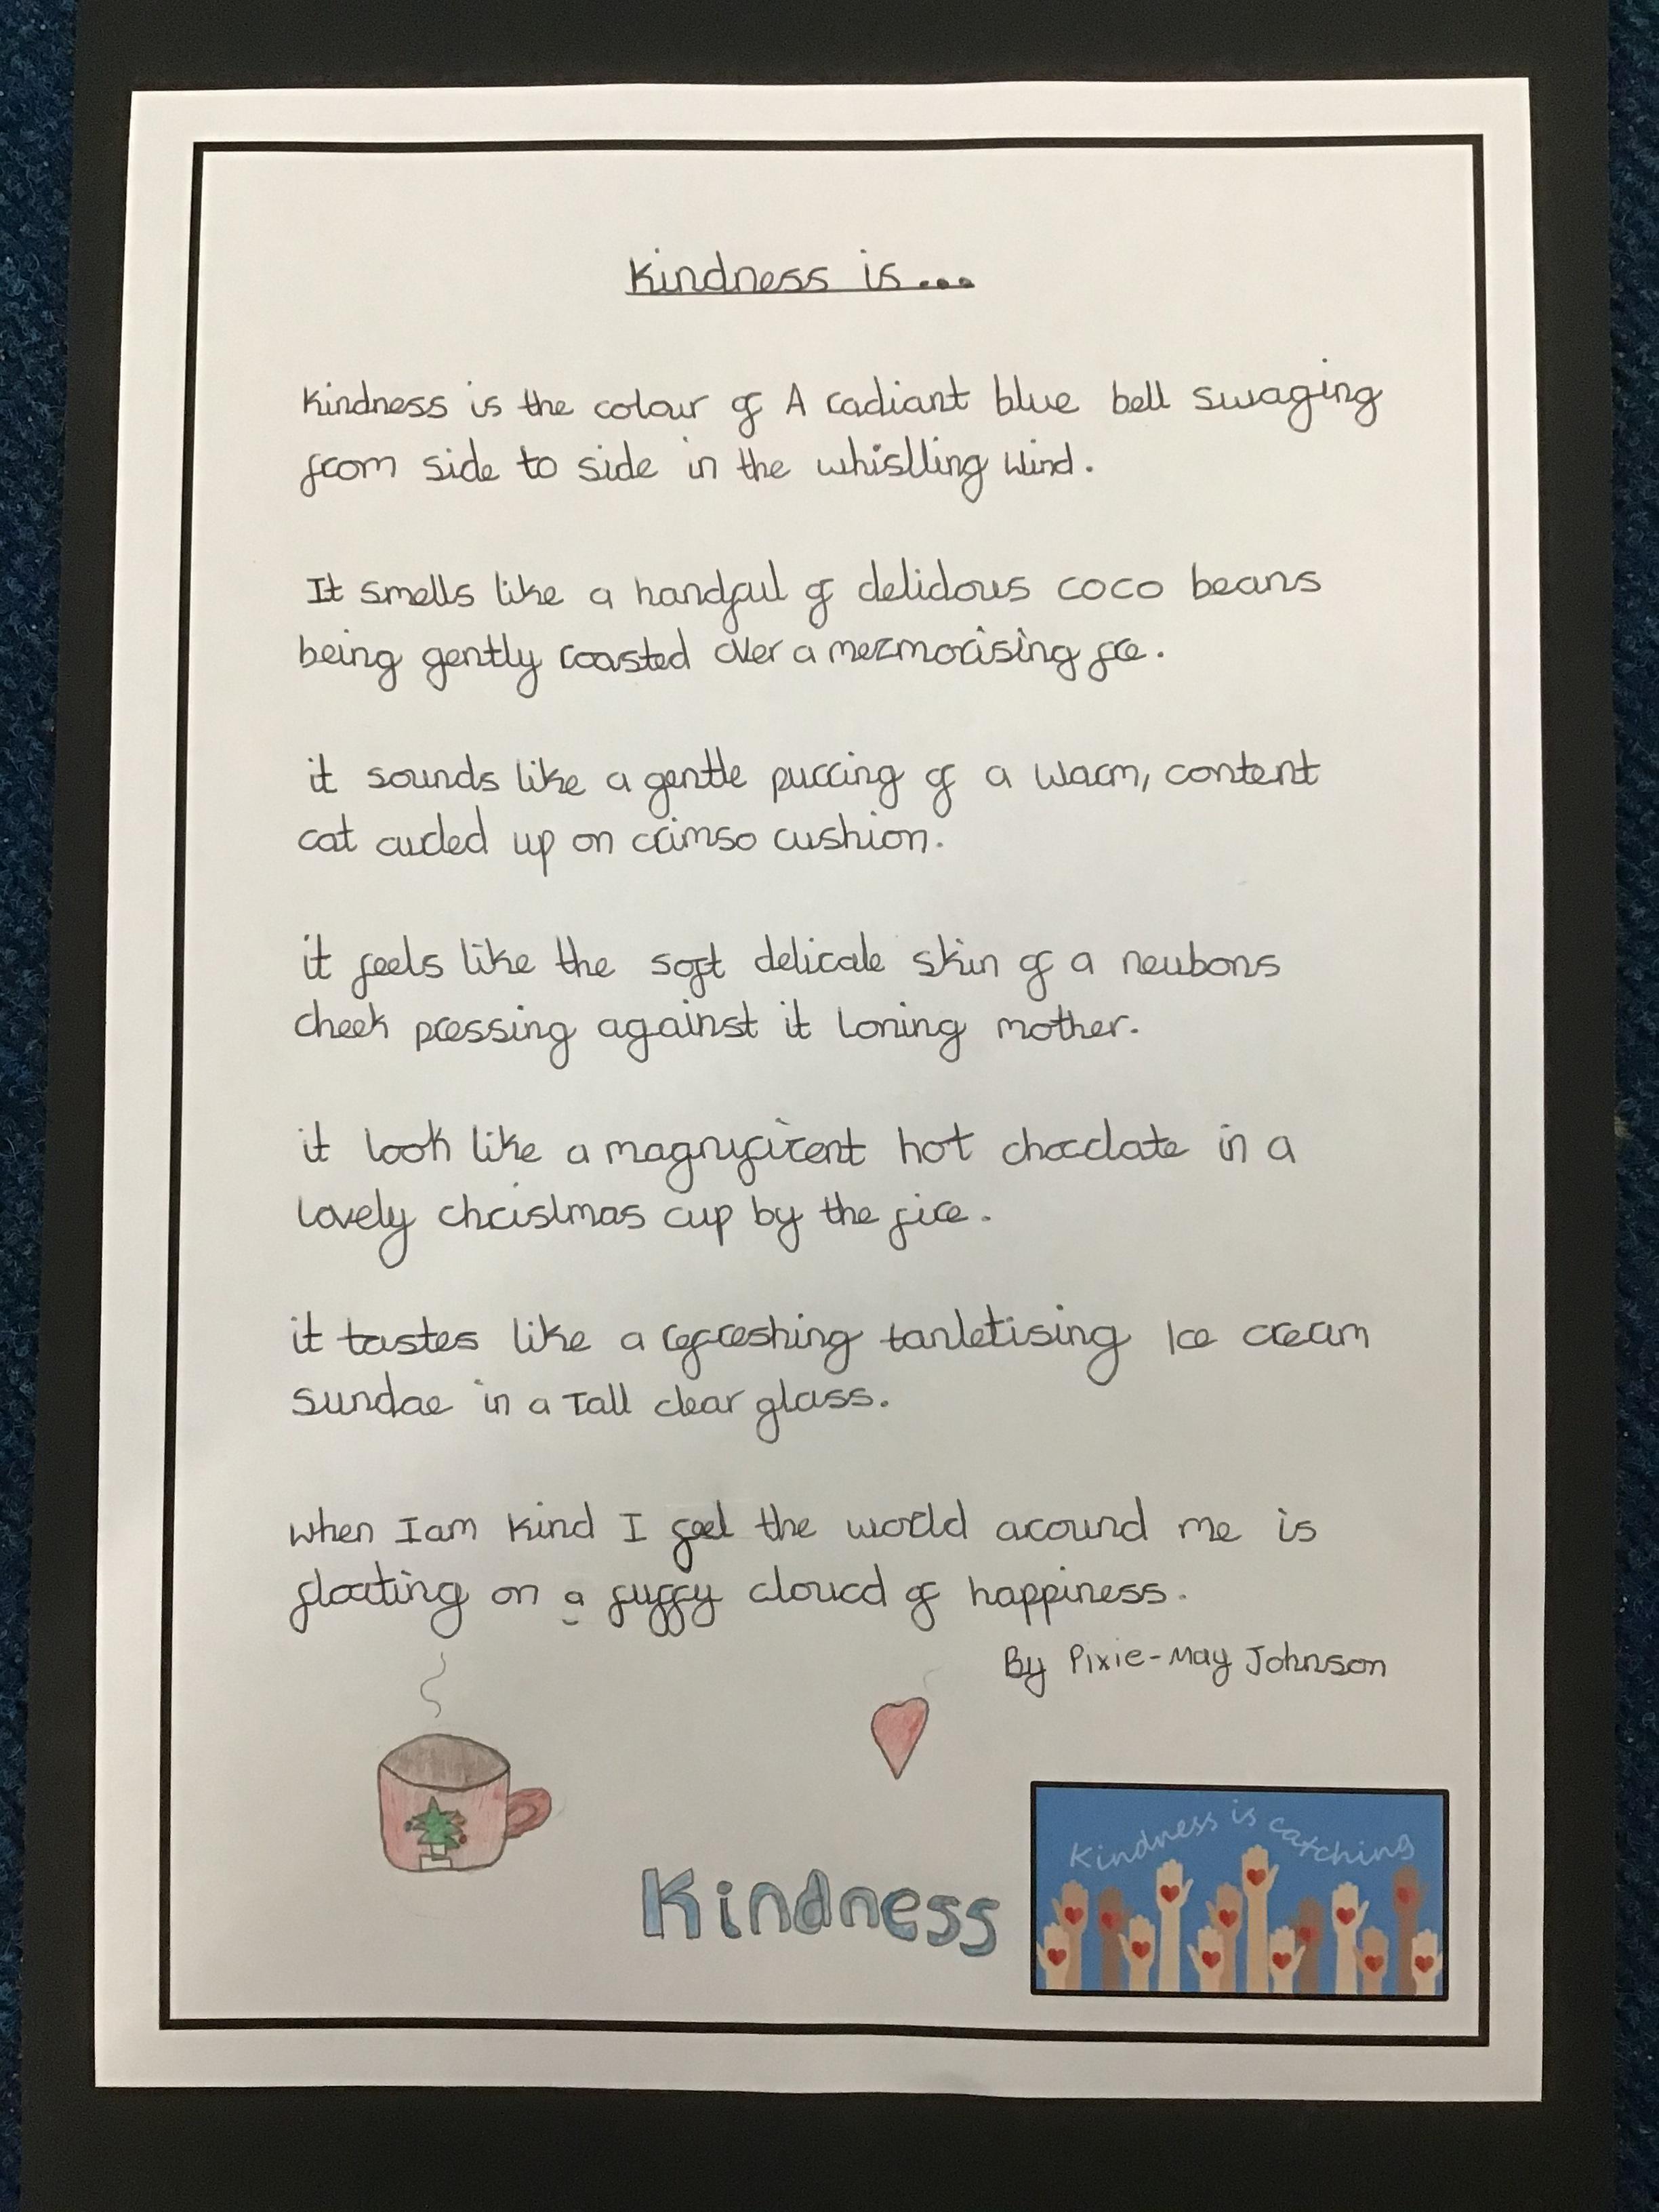 Kindness is...
Kindness is the colour of A radiant blue bell swaging
from side to side in the whislling wind.
It smells like a handful of delidous coco beans
being gently roasted over a mezmorising fre.
it sounds like a gentle purring of a warm, content
cat curled up on crimso cushion.
it feels like the soft delicale skin of a neubons
cheek pressing against it loning mother.
it look like a magnificent hot choclate in a
lovely chrislmas cup by the fire.
it tastes like a refreshing tanletising Ice cream
sundae in a Tall clear glass.
when I am kind I feel the world around me is
floating on a fuffy cloucd of happiness.
By Pixie-May Johnson
Kindness is catching
Kindness